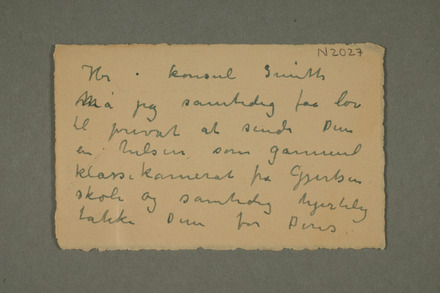 N2027
Hr. konsul Smith
Må jeg samtidig faa lov
til privat at sende Dem
en hilsen som gammel
klassekamerat fra Gjertsen
skole og samtidig hjertelig
takke Dem for Deres